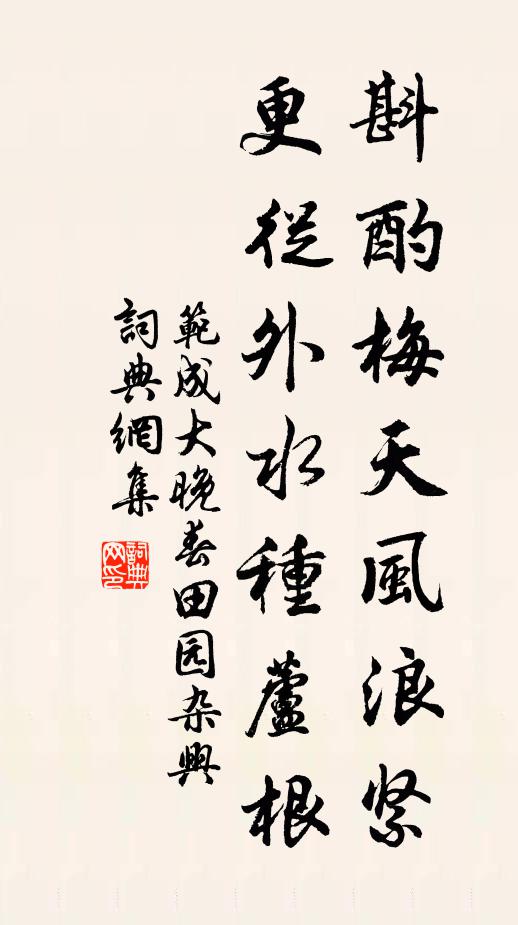 斟酌梅天風浪紧
更從外水種蘆根
範成大晚春田园杂興
詞典網集
詞典网印